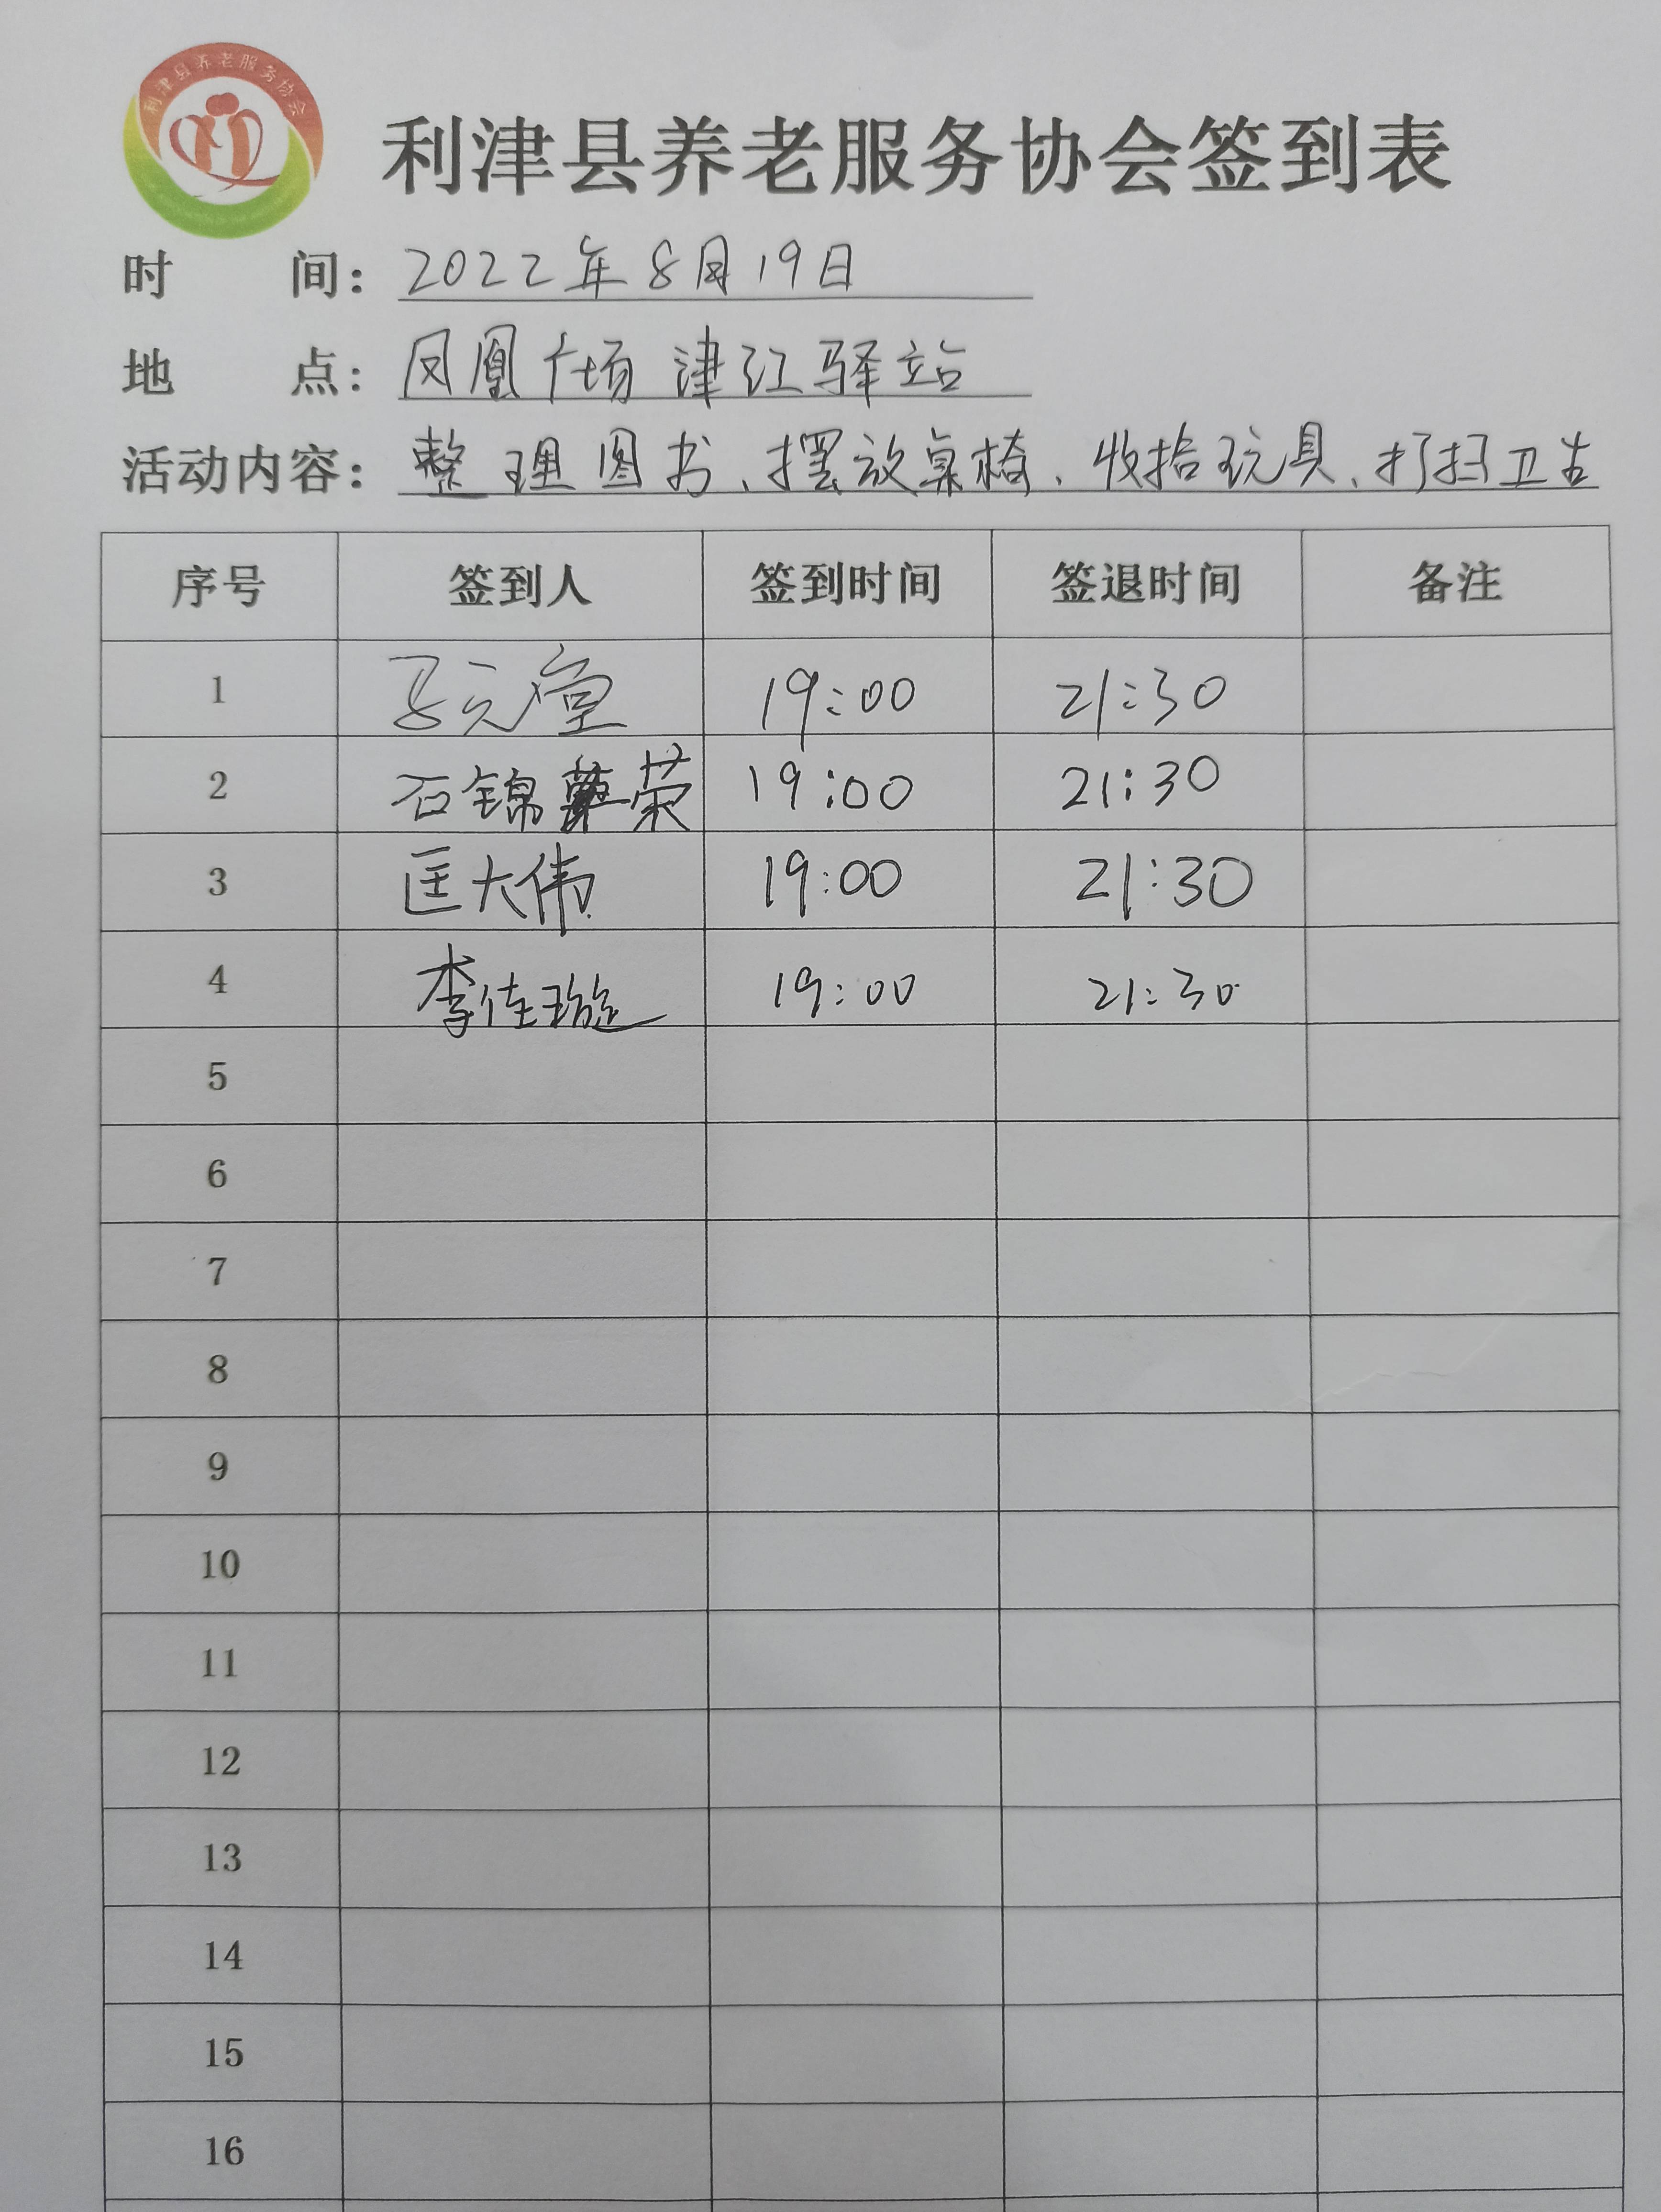 利津县养老服务协会
利津县养老服务协会签到表
时 间：2022年8月19日
地 点：凤凰广场 津江驿站
活动内容：整理图书、摆放桌椅、收拾玩具、打扫卫生
序号 签到人 签到时间 签退时间 备注
1 19:00 21:30
2 石锦荣 19:00 21:30
3 匡大伟 19:00 21:30
4 李佳璇 19:00 21:30
5
6
7
8
9
10
11
12
13
14
15
16